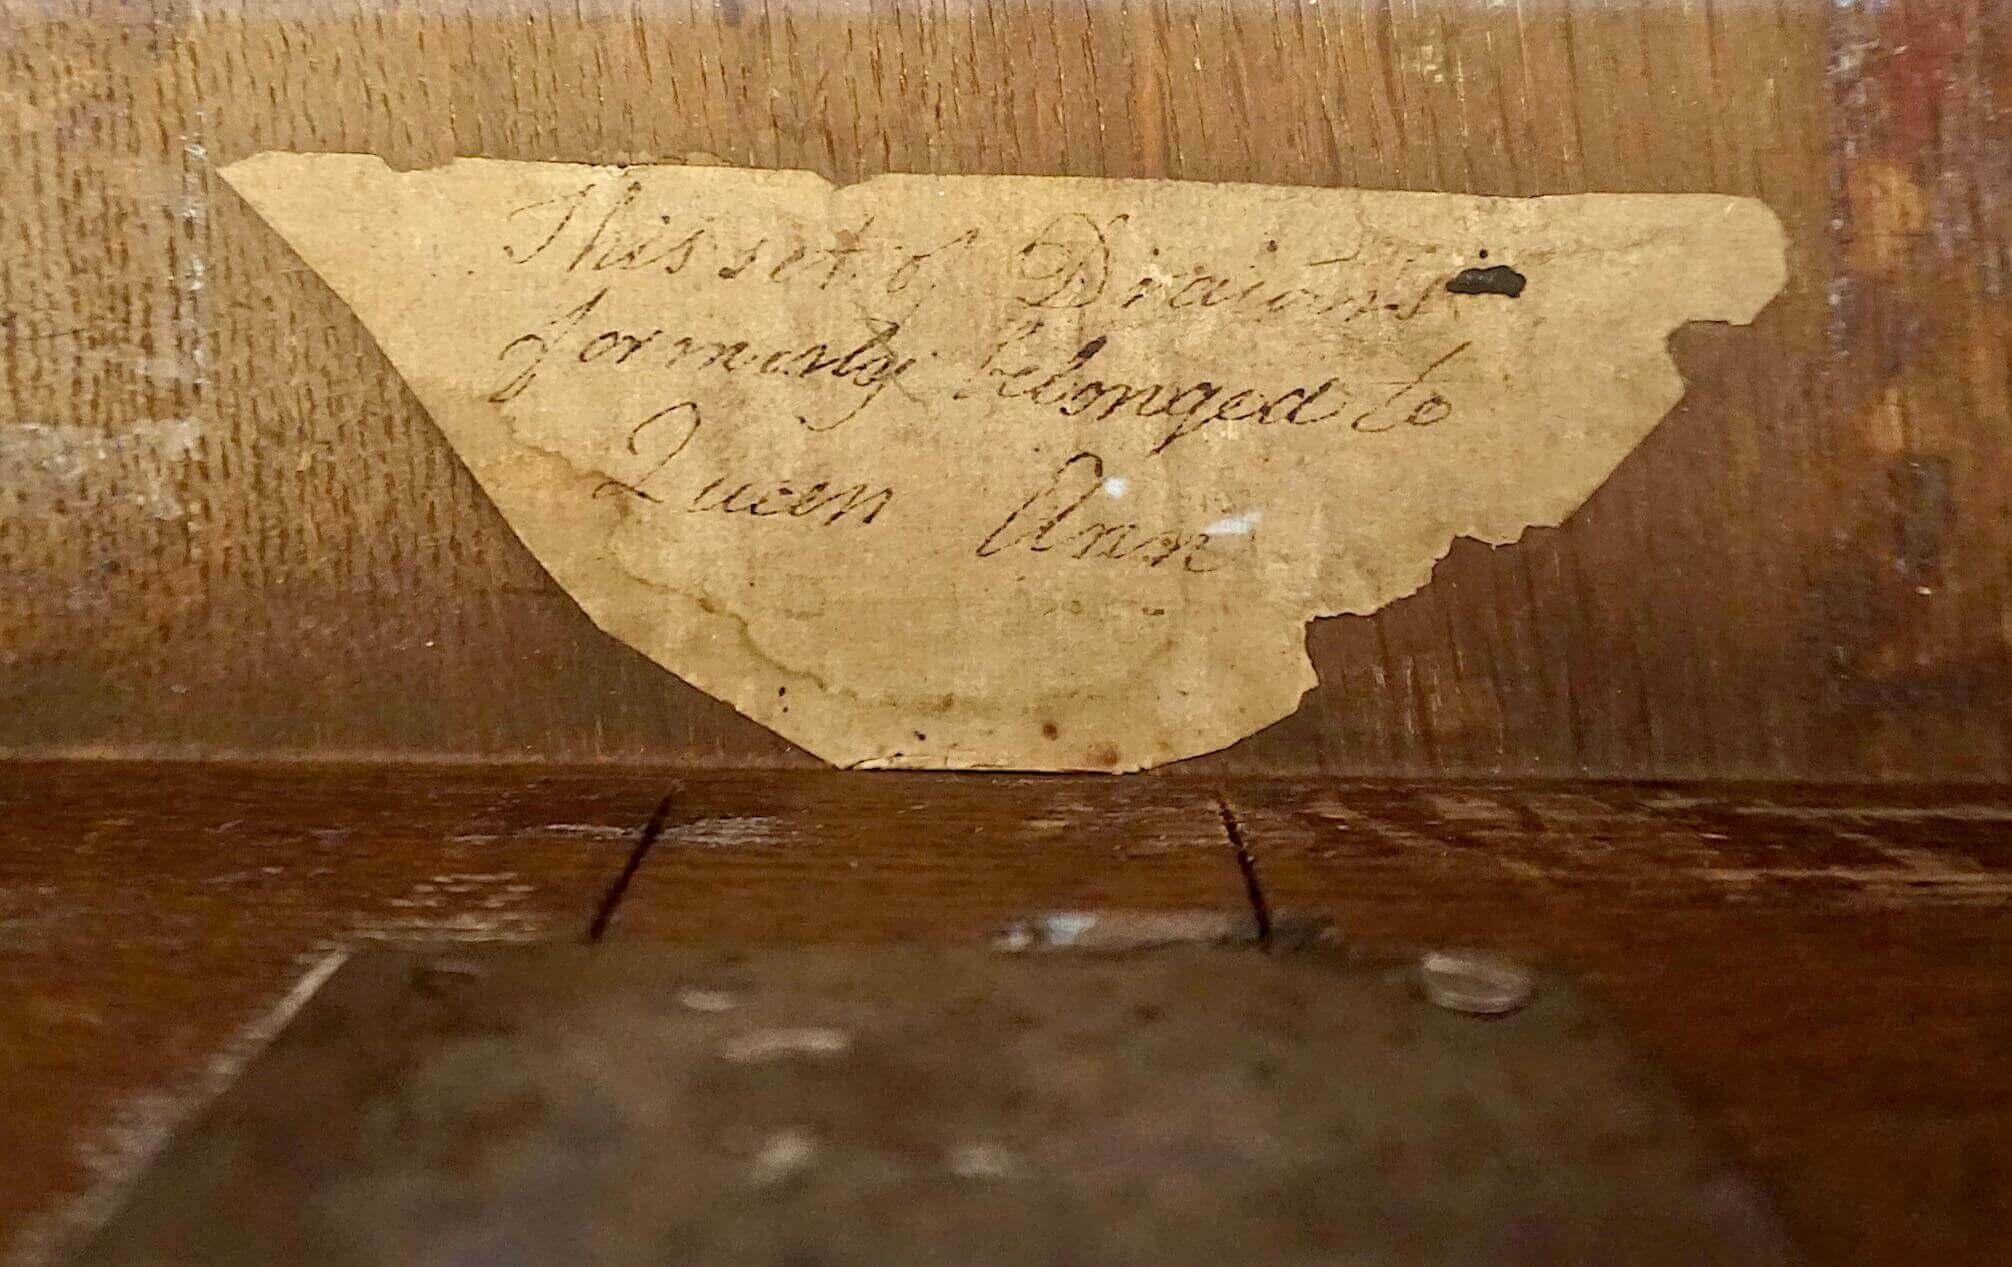 This set of
formerly belonged to
Queen Ann